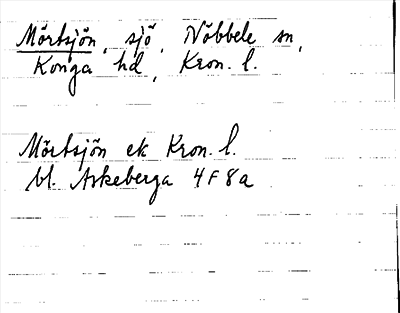 Mörtsjön, sjö, Nöbbele sn,
Konga hd, Kron. l.
Mörtsjön ek Kron. l.
bl. Askeberga 4F 8a